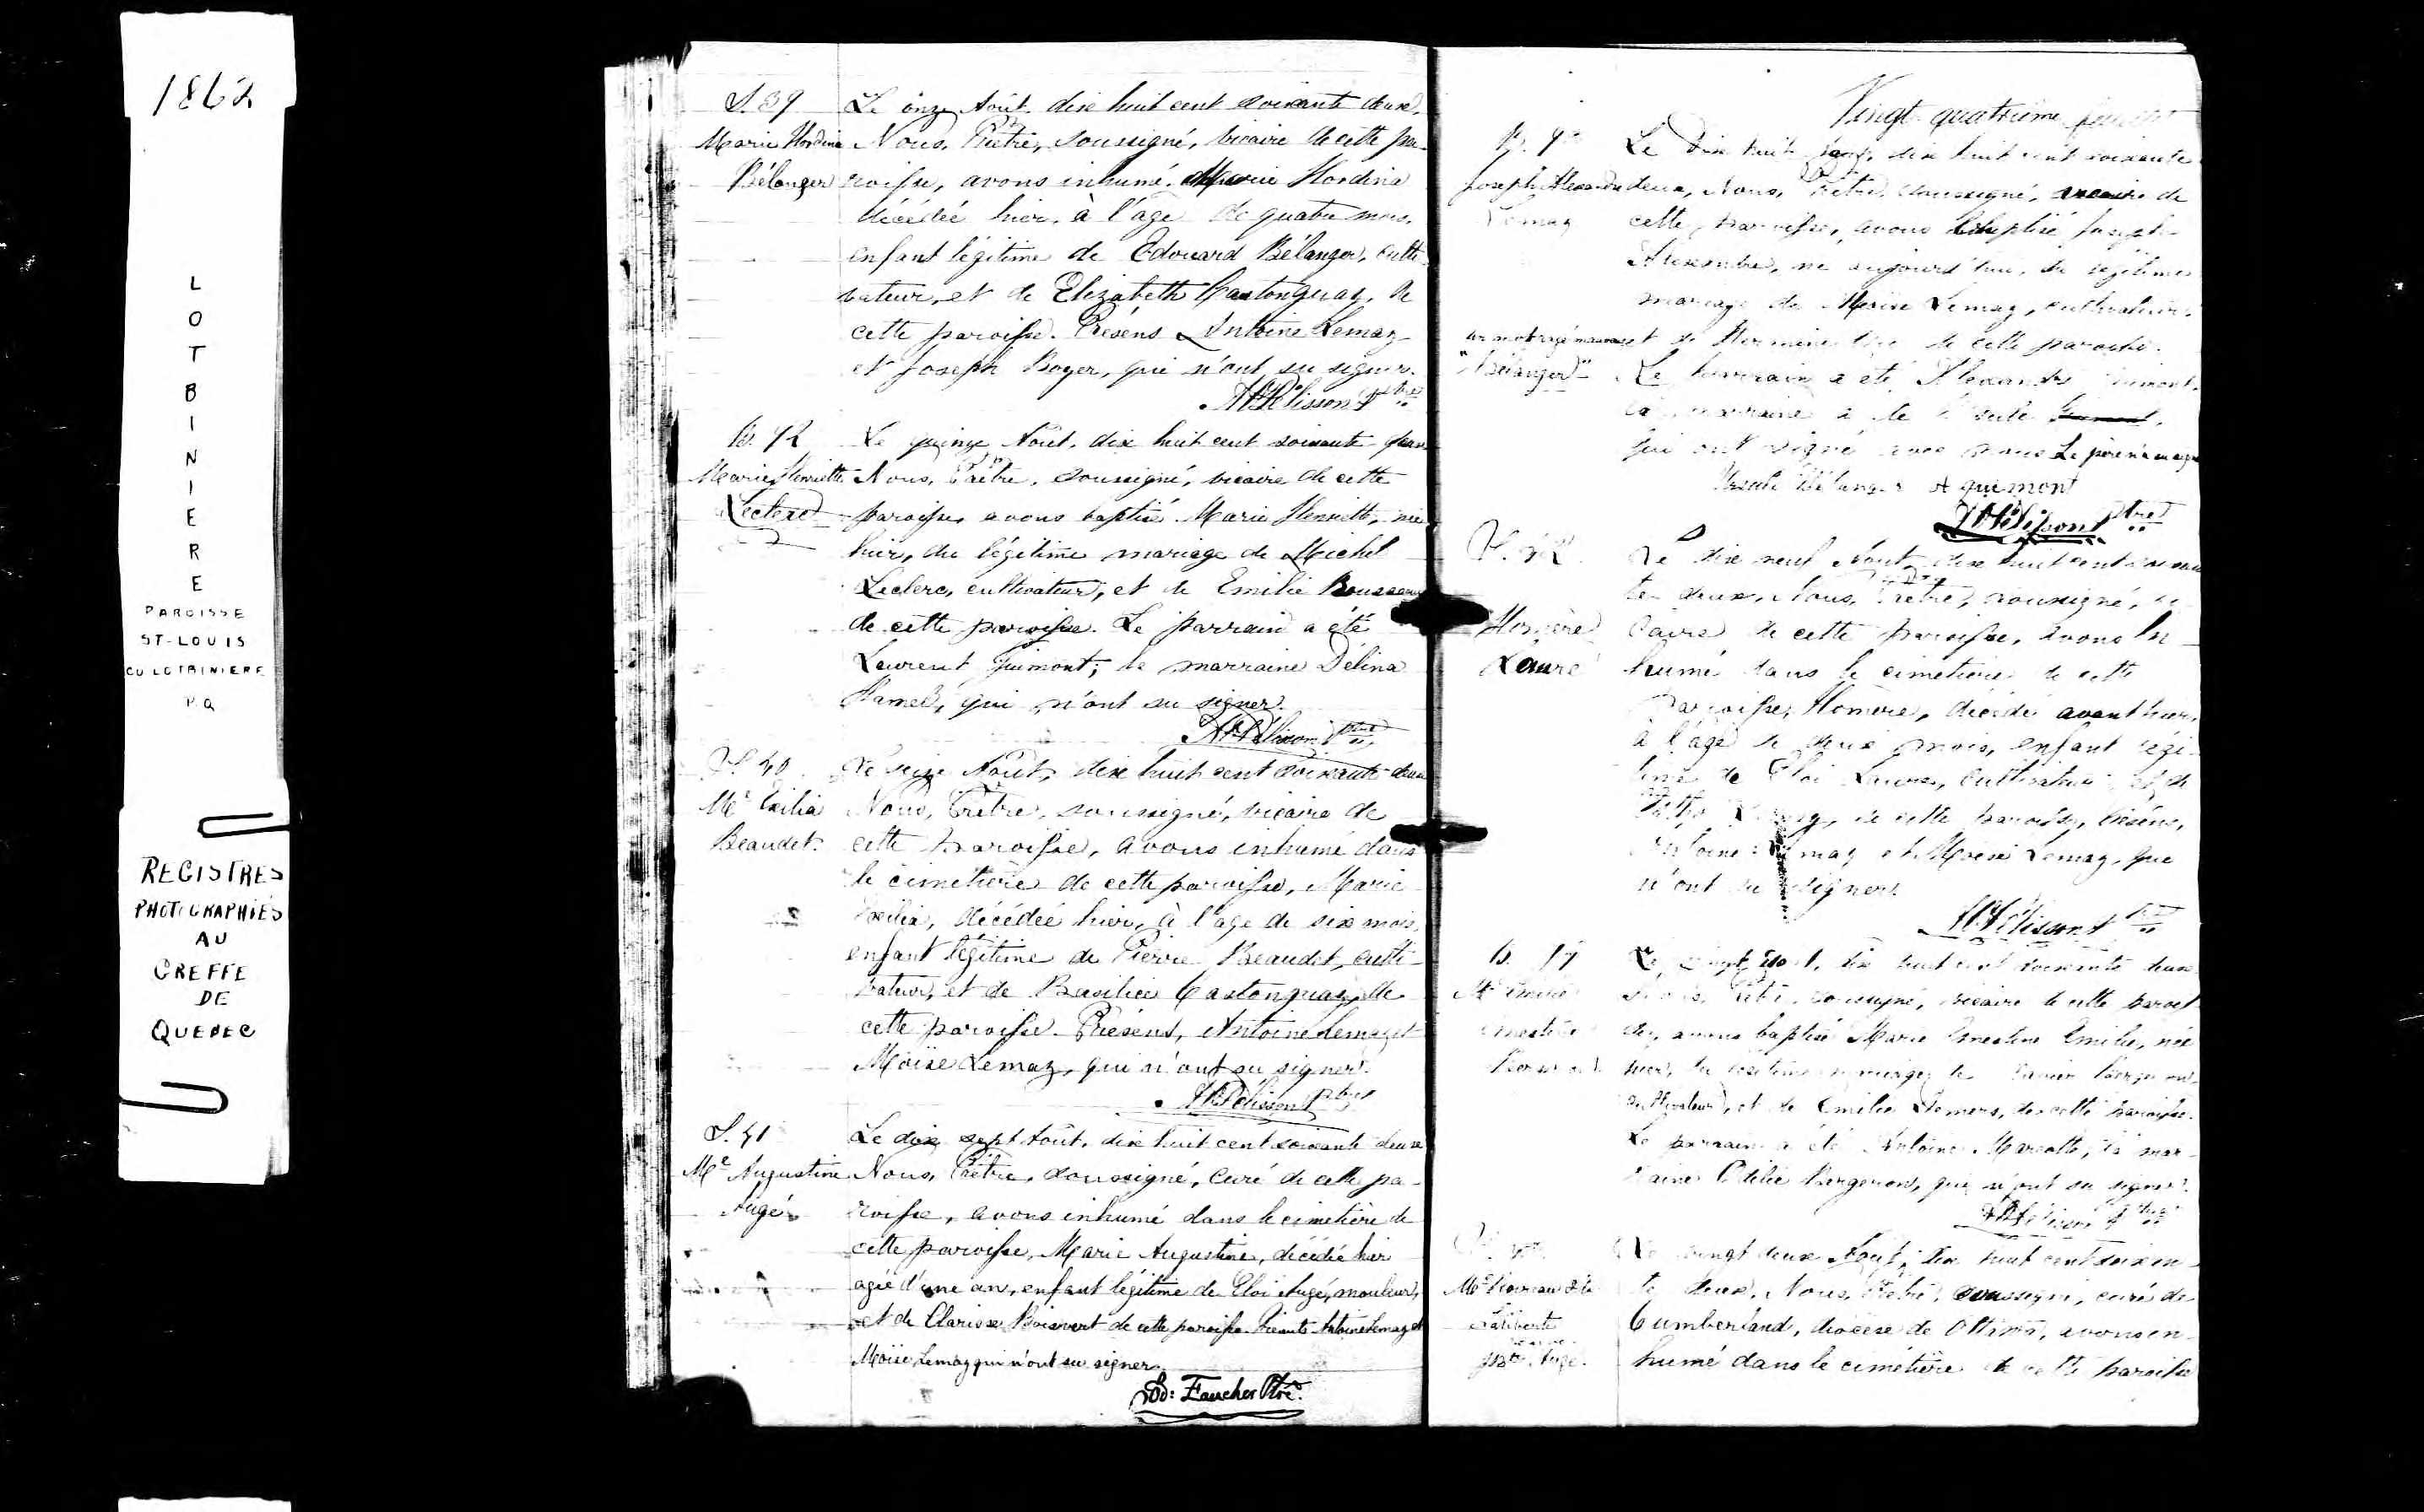 1862
L
O
T
B
I
N
I
E
R
E
PAROISSE
ST-LOUIS
CO LOTBINIERE
P.Q
REGISTRES
PHOTOGRAPHIÉS
AU
GREFFE
DE
QUEBEC
S. 39
Marie Hordina
Bélanger
Le onze Août dix huit cent soixante deux,
Nous, Prêtre, soussigné, vicaire de cette pa-
roisse, avons inhumé Marie Hordina
décédée hier, à l'age de quatre mois,
enfant légitime de Edouard Bélanger, culti-
vateur, et de Elizabeth Castonguay, de
cette paroisse. Présens Antoine Lemay
et Joseph Boyer, qui n'ont su signer.
Ptre
B. 92
Marie Henriette
Leclerc
Le quinze Août, dix huit cent soixante deux
Nous, Prêtre, soussigné, vicaire de cette
paroisse, avons baptisé Marie Henriette, née
hier, du légitime mariage de Michel
Leclerc, cultivateur, et de Emilie Rousseau
de cette paroisse. Le parrain a été
Laurent Guimont; la marraine Délina
Hamel, qui n'ont su signer.
Ptre
S. 40
Me Exilia
Beaudet.
Le seize Août, dix huit cent soixante deux
Nous, Prêtre, soussigné, vicaire de
cette paroisse, avons inhumé dans
le cimetière de cette paroisse, Marie
Exilia, décédée hier, à l'age de six mois,
enfant légitime de Pierre Beaudet, culti-
vateur, et de Basilice Castonguay, de
cette paroisse. Présens, Antoine Lemay et
Moïse Lemay, qui n'ont su signer.
Ptre
S. 41
Me Augustine
Augé
Le dix sept Août, dix huit cent soixante deux
Nous, Prêtre, soussigné, Curé de cette pa-
roisse, avons inhumé dans le cimetière de
cette paroisse, Marie Augustine, décédée hier
agée d'une an, enfant légitime de Eloi Augé, mouleur,
et de Clarisse Boisvert de cette paroisse. Présents Antoine Lemay et
Moïse Lemay qui n'ont su signer.
Ed: Faucher Ptre.
Vingt-quatrième feuillet
Joseph Alexandre
Lemay
"Bélanger"
Le dix huit Août, dix huit cent soixante
deux, Nous, Prêtre, soussigné, vicaire de
cette paroisse, avons baptisé Joseph
Alexandre, né aujourd'hui, du légitime
mariage de Moïse Lemay, cultivateur,
et de Hermine de cette paroisse.
Le parrain a été Alexandre Guimont,
la marraine a été
qui ont signé avec nous. Le père n'a su signer
Ursule Bélanger A guimont
Ptre
S. 42
Homère
Lauré
Le dix neuf Août, dix huit cent soixan
te deux, Nous, Prêtre, soussigné, vi
caire de cette paroisse, avons in
humé dans le cimetière de cette
paroisse, Homère, décédé avant hier,
à l'age de deux mois, enfant légi-
time de Eloi, cultivateur et de
Lemay, de cette paroisse, Présens,
Antoine Lemay et Moïse Lemay, qui
n'ont su signer.
Ptre
Le vingt Août, dix huit cent soixante deux
Nous, Prêtre, soussigné, vicaire de cette parois
se, avons baptisé Marie Ernestine Emilie, née
hier, du légitime mariage de Bergeron
cultivateur, et de Emilie Demers, de cette paroisse.
Le parrain a été Antoine Marcotte, la mar-
raine Odelie Bergeron, qui n'ont su signer.
Ptre
Laliberté
Le vingt deux Août, dix huit cent soixan
te deux, Nous, Prêtre, soussigné, curé de
Cumberland, diocèse de Ottawa, avons in-
humé dans le cimetière de cette paroisse